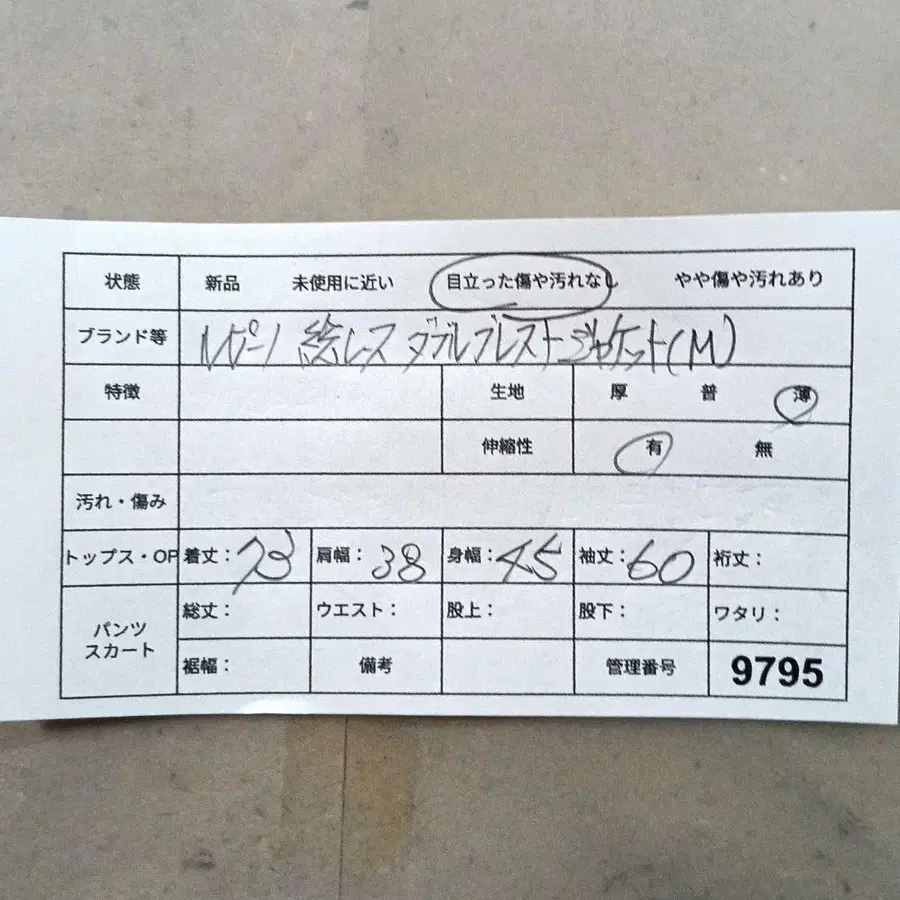 状態 新品 未使用に近い 目立った傷や汚れなし やや傷や汚れあり
ブランド等 ルピーノ 総レース ダブルブレストジャケット(M)
特徴 生地 厚 普 薄
伸縮性 有 無
汚れ・傷み
トップス・OP 着丈:73 肩幅:38 身幅:45 袖丈:60 裄丈:
パンツ スカート 総丈: ウエスト: 股上: 股下: ワタリ:
裾幅: 備考 管理番号 9795